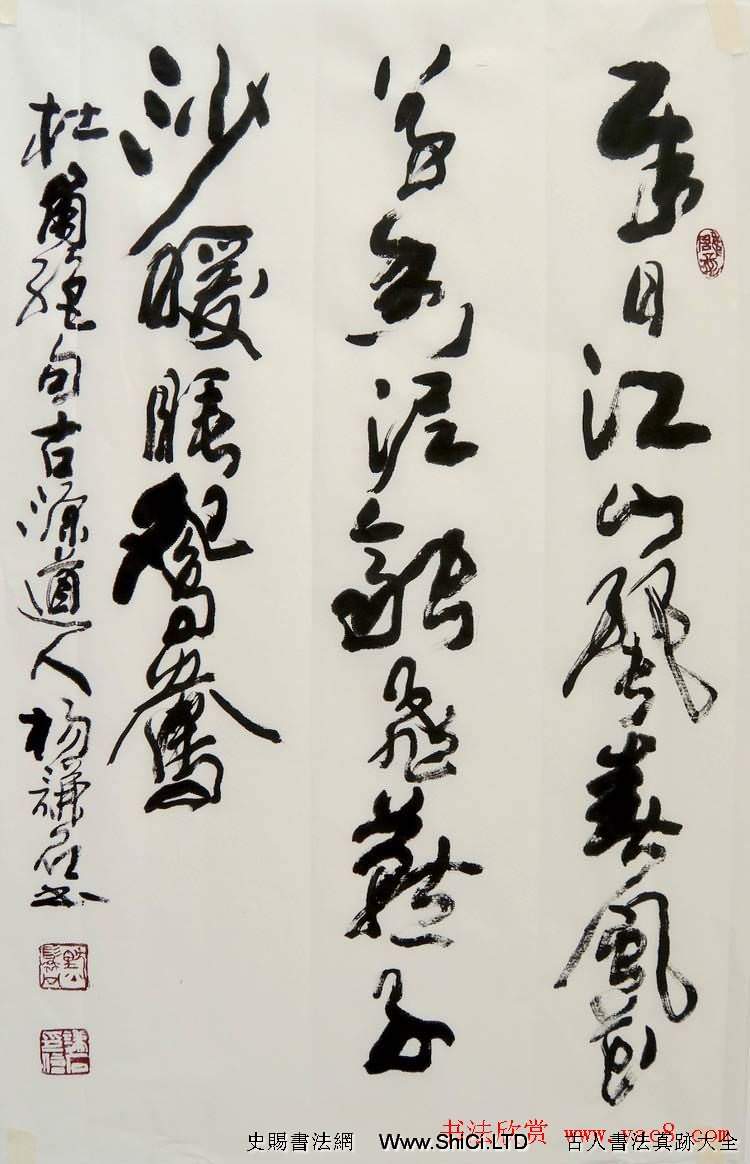 遲日江山麗春風花
草香泥融飛燕子
沙暖睡鴛鴦
杜甫絕句古滁道人楊謙石書
书法欣赏 www.yac8.com
史賜書法網 Www.ShiCi.LTD 古人書法真跡大全